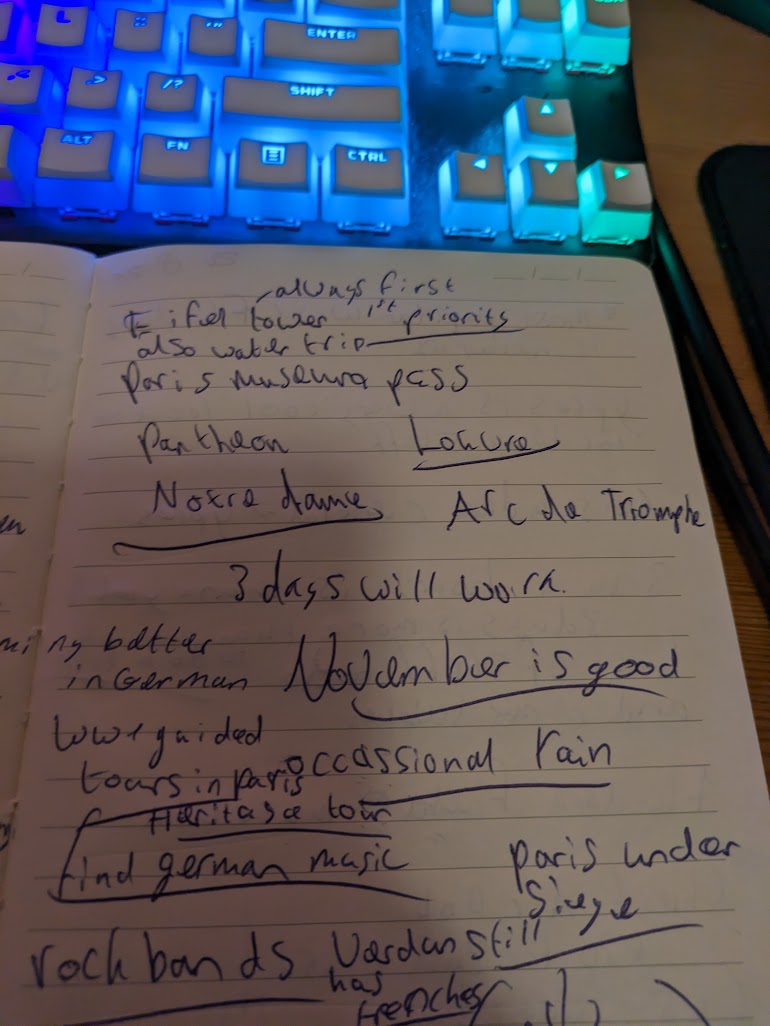 L
: ;
" '
ENTER
> .
/?
SHIFT
ALT
FN
CTRL
always first
Eifel tower 1st priority
also water trip
Paris museum pass
Pantheon Louvre
Notre dame Arc de Triomphe
3 days will work.
better
in German November is good
ww1 guided
tours in paris occassional rain
Heritage tour
find german music paris under
Siege
rock bands Verdun still
has
trenches